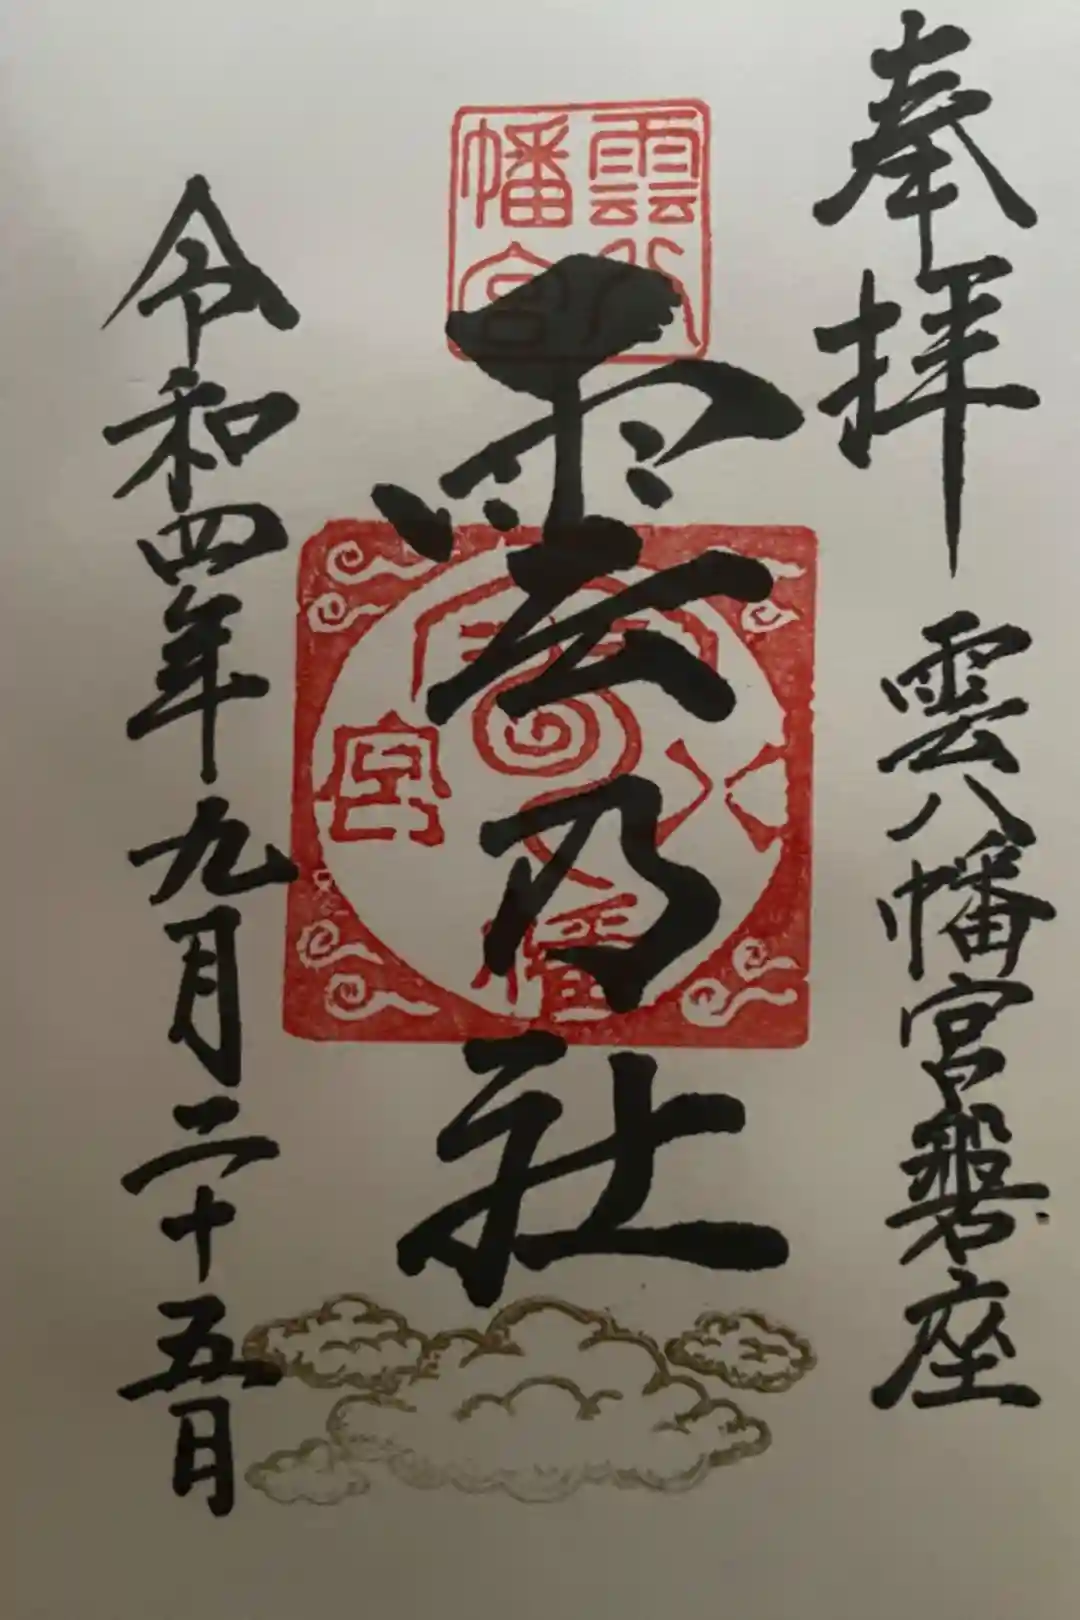 奉拝
雲八幡宮磐座
雲八幡宮
雲乃社
雲八幡宮
令和四年九月二十五日